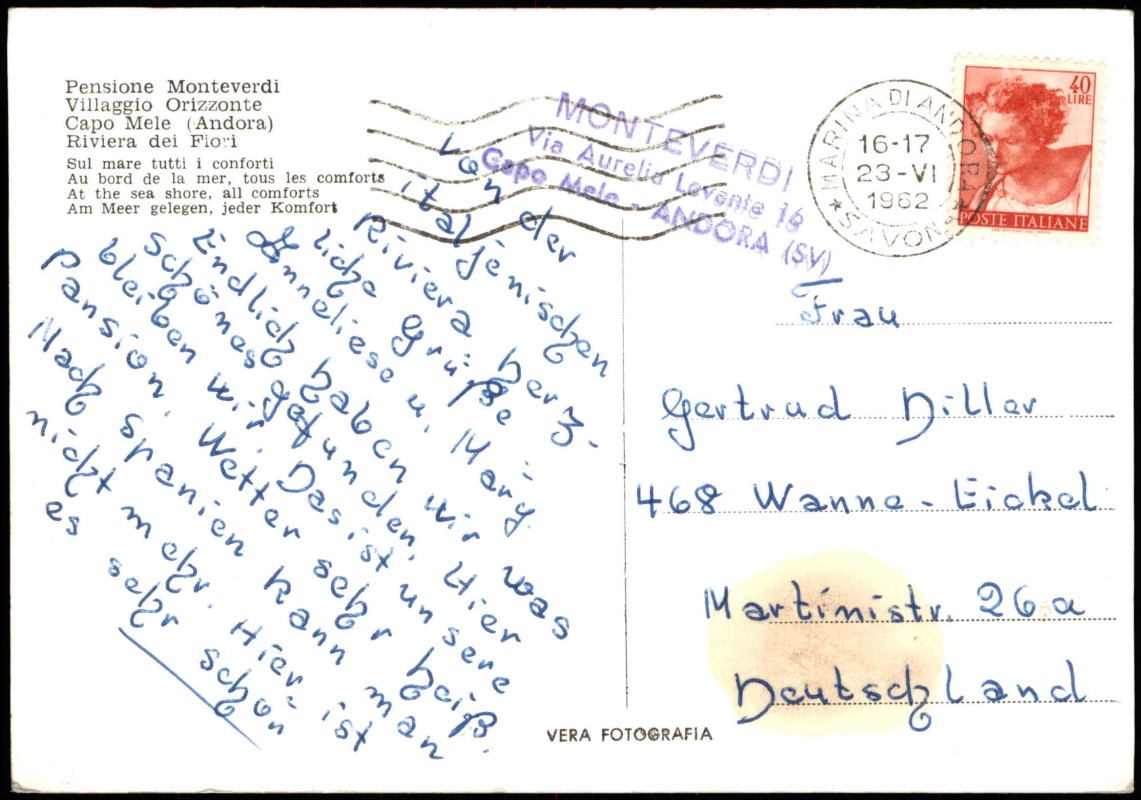 Pensione Monteverdi
Villaggio Orizzonte
Capo Mele (Andora)
Riviera dei Fiori
Sul mare tutti i conforti
Au bord de la mer, tous les comforts
At the sea shore, all comforts
Am Meer gelegen, jeder Komfort
MONTEVERDI
Via Aurelia Levante 16
Capo Mele - ANDORA (SV)
MARINA DI ANDORA
16-17
23-VI
1962
SAVONA
40
LIRE
POSTE ITALIANE
Von der
italjenischen
Riviera herz-
liche Grüße
Anneliese u. Marg.
Endlich haben wir was
schönes gefunden. Hier
bleiben wir. Das ist unsere
Pansion. Wetter sehr heiß.
Nach Spanien kann man
nicht mehr. Hier ist
es sehr schön
Frau
Gertrud Diller
468 Wanne-Eickel
Martinistr. 26a
Deutschland
VERA FOTOGRAFIA